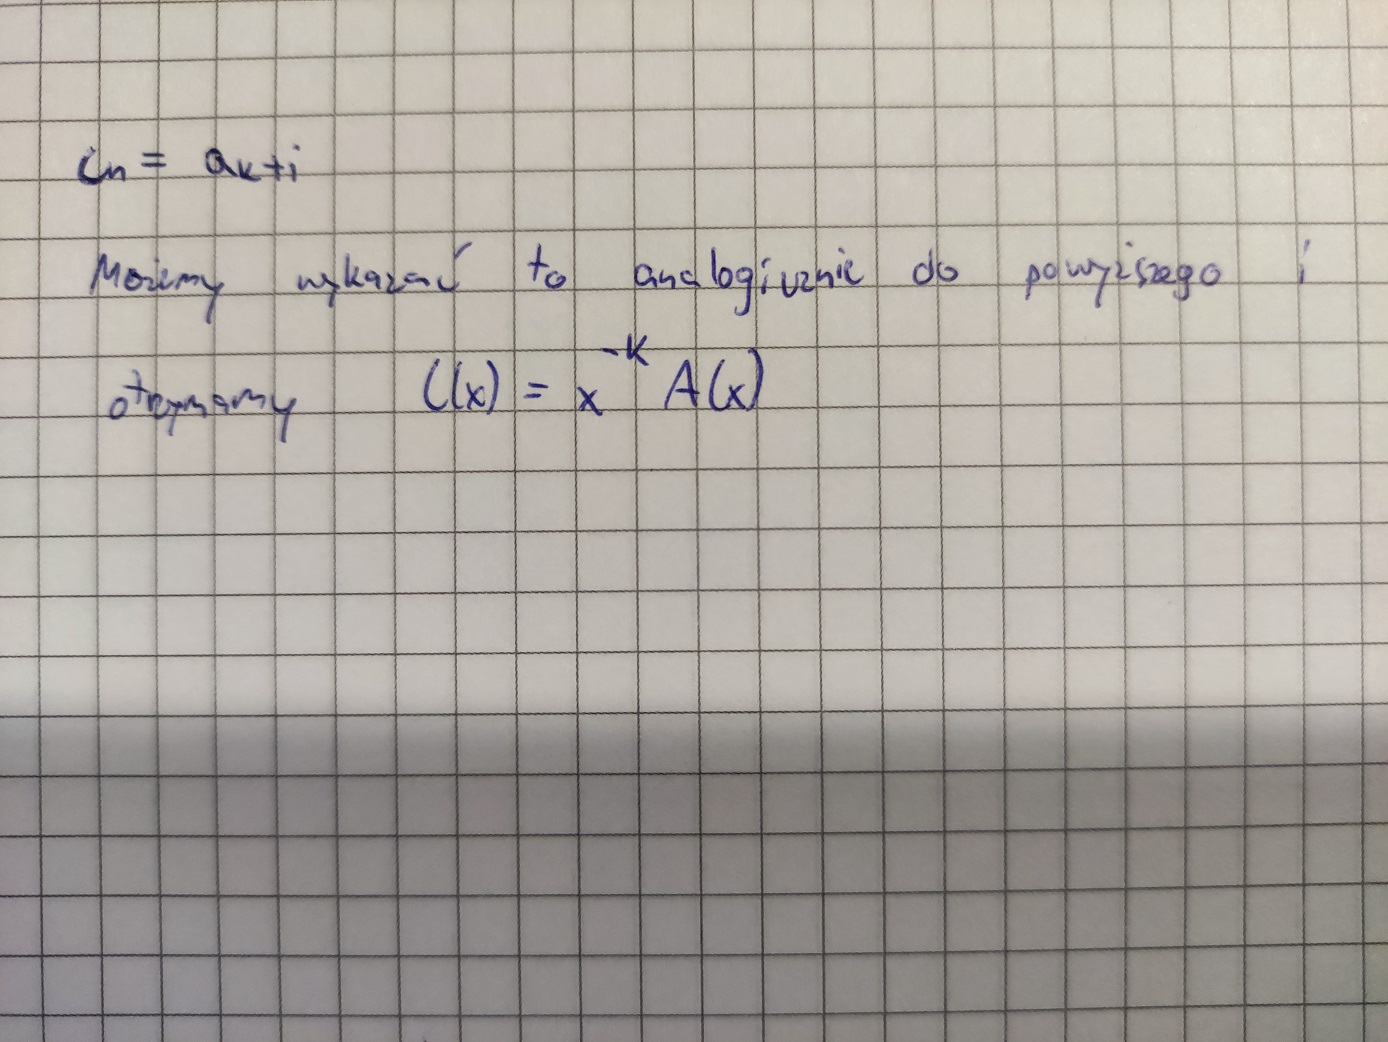 cn = ak+i
Możemy wykazać to analogicznie do powyższego i
otrzymamy C(x) = x^-k A(x)